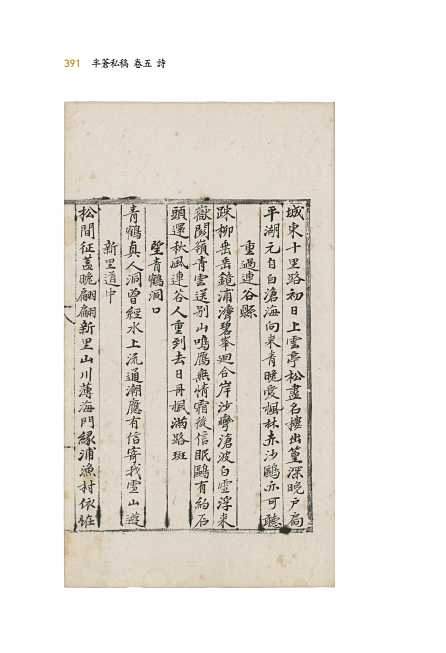 391 半蒼私稿 卷五 詩
城東十里路初日上雲亭松盡名樓出篁深晚戶扃
平湖元自白滄海向來青晚愛楓林赤沙鷗亦可聽
重過連谷縣
柳岳岳鏡浦碧峯迴合岸沙彎滄波白雲浮來
嶽關嶺青雲送別山鳴鴈無情霜後信眠鷗有約石
頭還秋風連谷人重到去日丹楓滿路斑
望青鶴洞口
青鶴真人洞曾經水上流通潮應有信寄我雪山遊
新里道中
松間征蓋晚翩翩新里山川薄海門緣浦漁村依